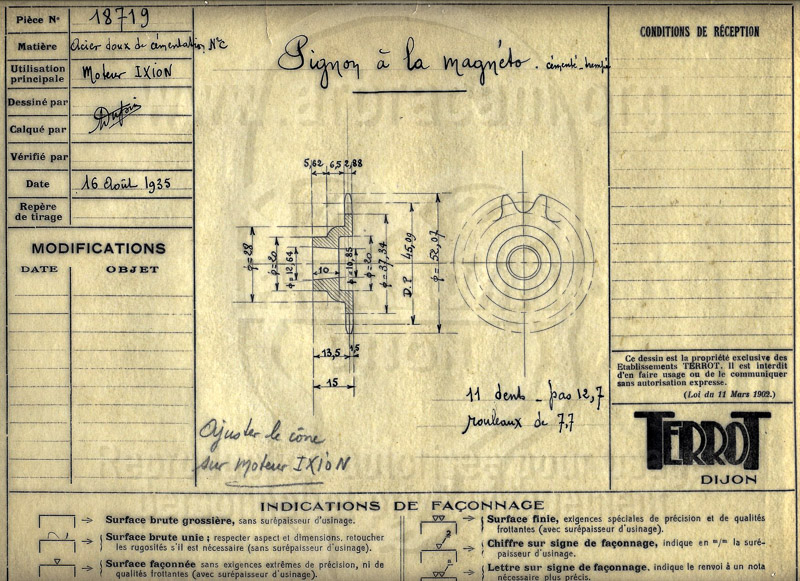 Pièce Nº 18719
Matière Acier doux de cémentation Nº2
Utilisation principale Moteur IXION
Dessiné par
Calqué par
Vérifié par
Date 16 Août 1935
Repère de tirage
MODIFICATIONS
DATE OBJET
Pignon à la magnéto. cémenté-trempé
CONDITIONS DE RÉCEPTION
5,62 6,5 2,88
φ=28
φ=20
φ=12,64
10
φ=10,85
φ=20
φ=37,34
D.P 45,09
φ=52,07
13,5 1,5
15
11 dents - pas 12,7
rouleaux de 7,7
Ajuster le cône
sur moteur IXION
Ce dessin est la propriété exclusive des
Etablissements TERROT. Il est interdit
d'en faire usage ou de le communiquer
sans autorisation expresse.
(Loi du 11 Mars 1902.)
TERROT
DIJON
INDICATIONS DE FAÇONNAGE
Surface brute grossière, sans surépaisseur d'usinage.
Surface brute unie ; respecter aspect et dimensions, retoucher
les rugosités s'il est nécessaire (sans surépaisseur d'usinage).
Surface façonnée sans exigences extrêmes de précision, ni de
qualités frottantes (avec surépaisseur d'usinage).
Surface finie, exigences spéciales de précision et de qualités
frottantes (avec surépaisseur d'usinage).
Chiffre sur signe de façonnage, indique en m/m la suré-
paisseur d'usinage.
Lettre sur signe de façonnage, indique le renvoi à un nota
nécessaire plus précis.